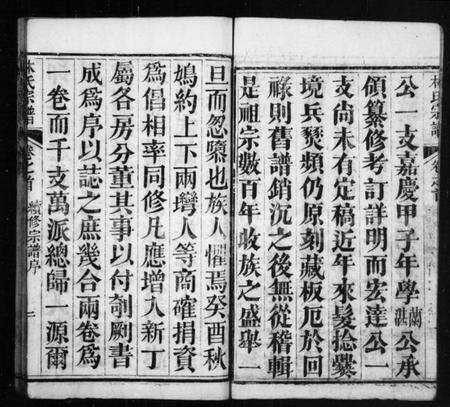 林氏宗譜
卷之首
公一支嘉慶甲子年學蘭湛公承
領纂修考訂詳明而宏達公一
支尚未有定稿近年來髮捻爨
境兵燹頻仍原刻藏板厄於回
祿則舊譜銷沉之後無從稽輯
是祖宗數百年收族之盛舉一
旦而忽隳也族人懼焉癸酉秋
鳩約上下兩灣人等商確捐資
為倡相率同修凡應增入新丁
屬各房分董其事以付剞劂書
成為序以誌之庶幾合兩卷為
一卷而千支萬派總歸一源爾
林氏宗譜
卷之首
續修宗譜序
一